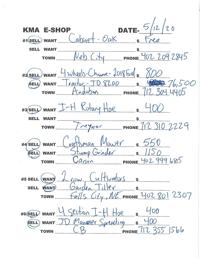 KMA E-SHOP DATE- 5/12/20
#1 SELL WANT Cabinet-Oak $ Free
SELL WANT $
TOWN Neb City PHONE 402 209 2845
#2 SELL WANT 4 wheels-Chrome- $ 800
SELL WANT Tractor-JD 8200 $ 76,500
TOWN PHONE 712 304 4405
#3 SELL WANT I-H Rotary Hoe $ 400
SELL WANT $
TOWN Treynor PHONE 712 310 2229
#4 SELL WANT Craftsman Mower $ 550
SELL WANT Stump Grinder $ 1150
TOWN PHONE 402 999 6185
#5 SELL WANT 2 row Cultivators $
SELL WANT Garden Tiller $
TOWN Falls City, NE PHONE 402 801 2307
#6 SELL WANT 4 section I-H Hoe $ 400
SELL WANT JD Manure Spreader $ 400
TOWN CB PHONE 712 355 1566